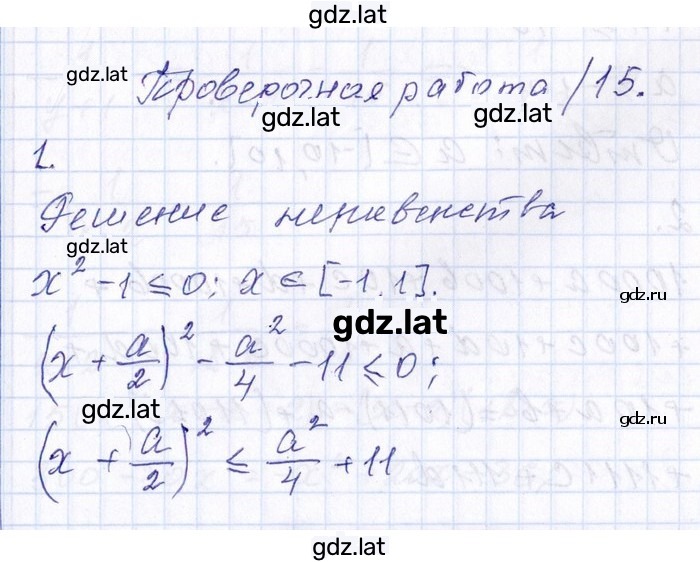 gdz.lat
gdz.lat
Проверочная работа /15.
gdz.lat gdz.lat
1.
Решение неравенства
gdz.lat
x² - 1 ≤ 0; x ∈ [-1, 1].
gdz.ru
gdz.lat
(x + a/2)² - a²/4 - 11 ≤ 0;
gdz.lat gdz.ru
(x + a/2)² ≤ a²/4 + 11
gdz.lat